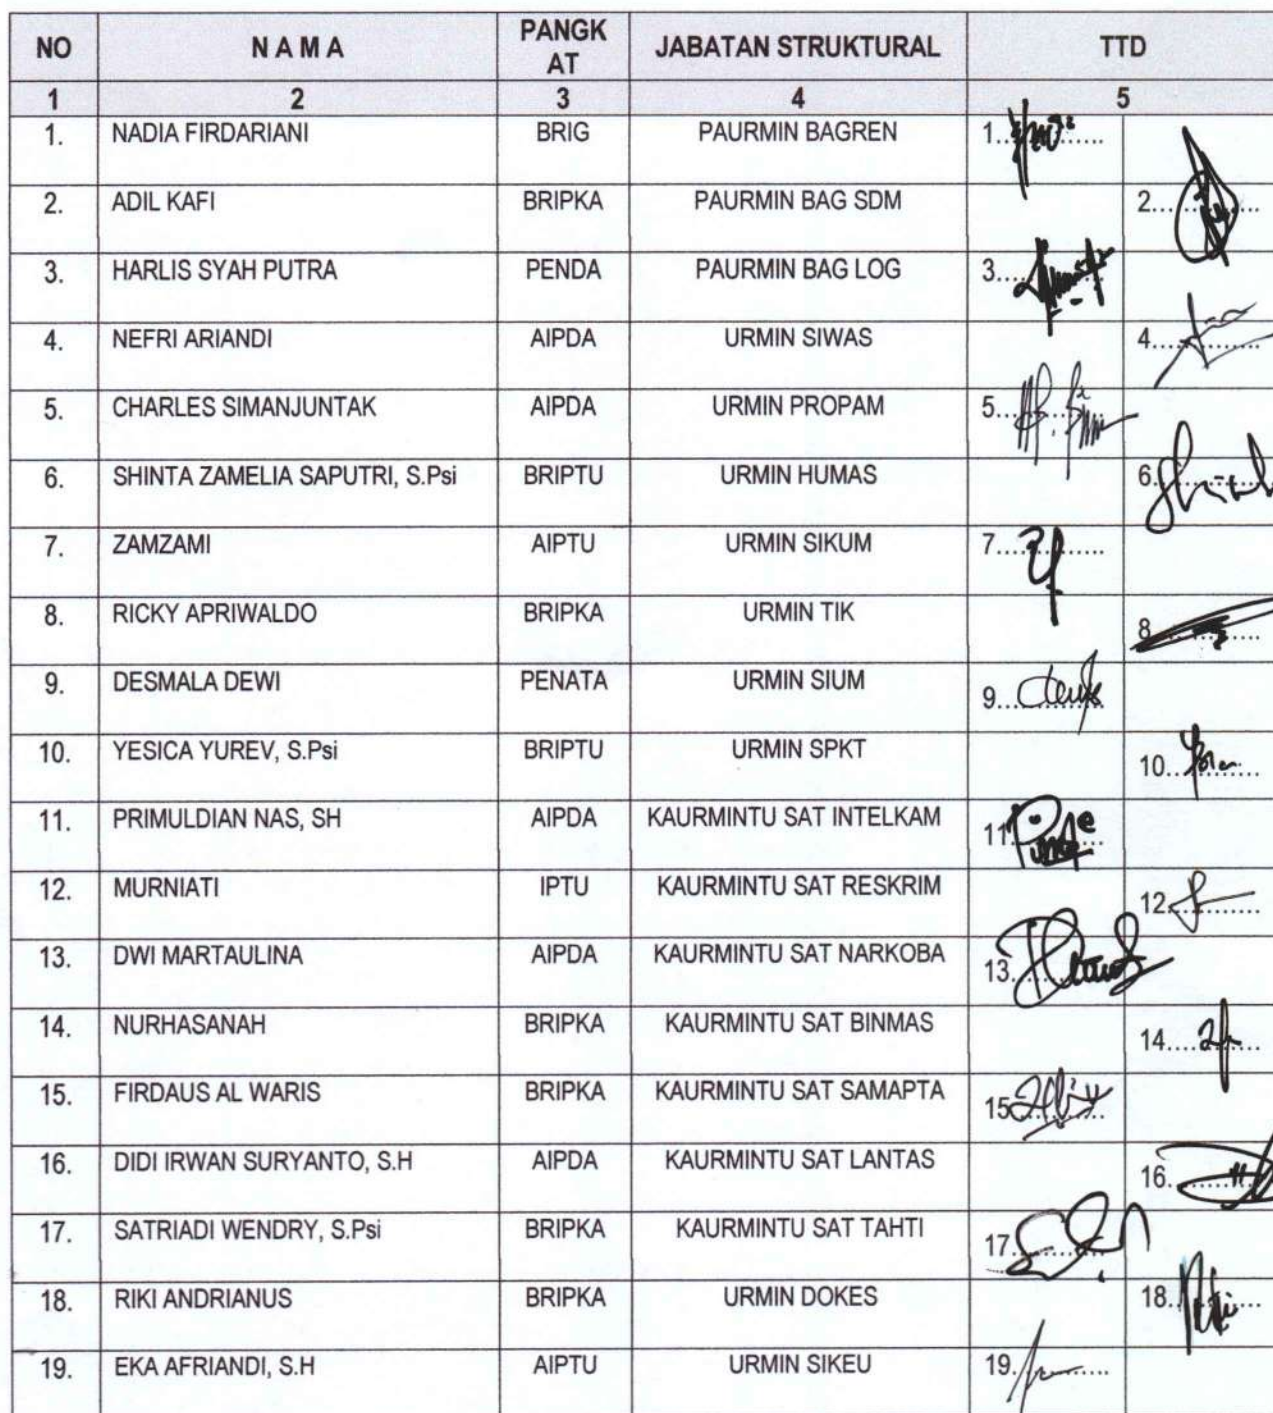 NO NAMA PANGKAT JABATAN STRUKTURAL TTD
1 2 3 4 5
1. NADIA FIRDARIANI BRIG PAURMIN BAGREN 1..........
2. ADIL KAFI BRIPKA PAURMIN BAG SDM 2..........
3. HARLIS SYAH PUTRA PENDA PAURMIN BAG LOG 3..........
4. NEFRI ARIANDI AIPDA URMIN SIWAS 4..........
5. CHARLES SIMANJUNTAK AIPDA URMIN PROPAM 5..........
6. SHINTA ZAMELIA SAPUTRI, S.Psi BRIPTU URMIN HUMAS 6..........
7. ZAMZAMI AIPTU URMIN SIKUM 7..........
8. RICKY APRIWALDO BRIPKA URMIN TIK 8..........
9. DESMALA DEWI PENATA URMIN SIUM 9..........
10. YESICA YUREV, S.Psi BRIPTU URMIN SPKT 10..........
11. PRIMULDIAN NAS, SH AIPDA KAURMINTU SAT INTELKAM 11..........
12. MURNIATI IPTU KAURMINTU SAT RESKRIM 12..........
13. DWI MARTAULINA AIPDA KAURMINTU SAT NARKOBA 13..........
14. NURHASANAH BRIPKA KAURMINTU SAT BINMAS 14..........
15. FIRDAUS AL WARIS BRIPKA KAURMINTU SAT SAMAPTA 15..........
16. DIDI IRWAN SURYANTO, S.H AIPDA KAURMINTU SAT LANTAS 16..........
17. SATRIADI WENDRY, S.Psi BRIPKA KAURMINTU SAT TAHTI 17..........
18. RIKI ANDRIANUS BRIPKA URMIN DOKES 18..........
19. EKA AFRIANDI, S.H AIPTU URMIN SIKEU 19..........